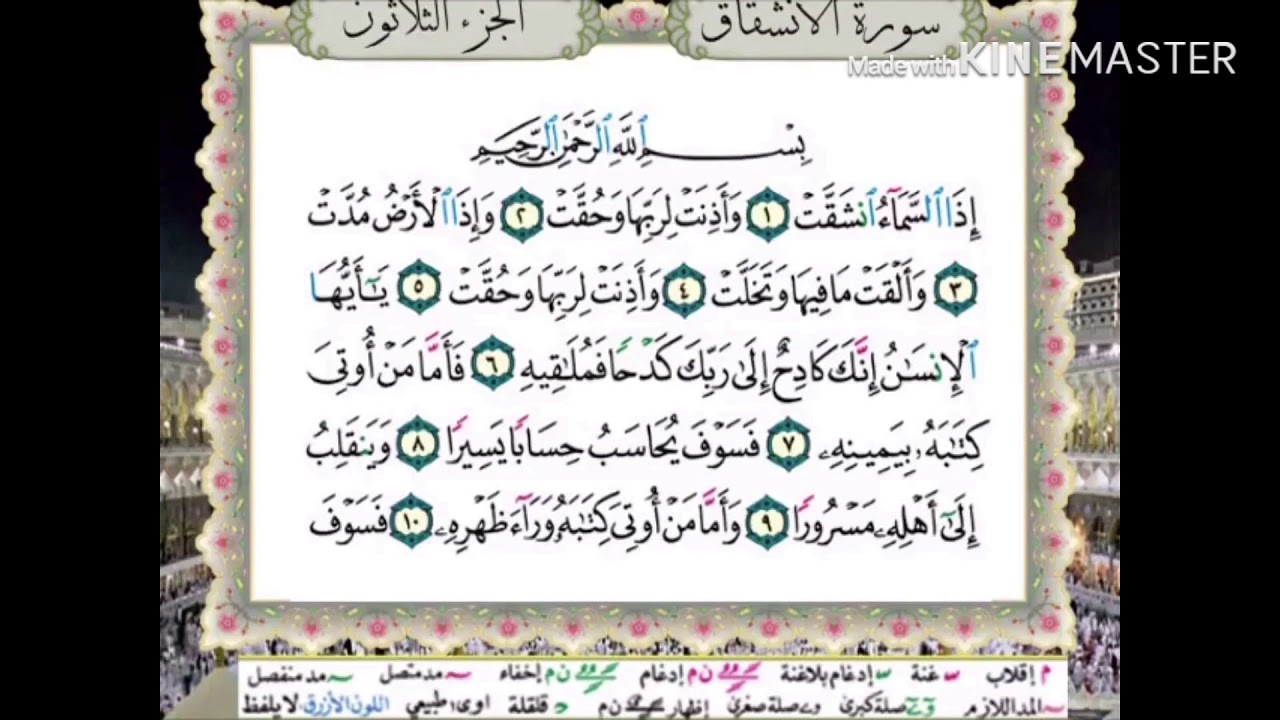 سورة الانشقاق الجزء الثلاثون
Made with KINEMASTER
بِسْمِ ٱللَّهِ ٱلرَّحْمَٰنِ ٱلرَّحِيمِ
إِذَا ٱلسَّمَآءُ ٱنشَقَّتْ ١ وَأَذِنَتْ لِرَبِّهَا وَحُقَّتْ ٢ وَإِذَا ٱلْأَرْضُ مُدَّتْ
٣ وَأَلْقَتْ مَا فِيهَا وَتَخَلَّتْ ٤ وَأَذِنَتْ لِرَبِّهَا وَحُقَّتْ ٥ يَٰٓأَيُّهَا
ٱلْإِنسَٰنُ إِنَّكَ كَادِحٌ إِلَىٰ رَبِّكَ كَدْحًا فَمُلَٰقِيهِ ٦ فَأَمَّا مَنْ أُوتِىَ
كِتَٰبَهُۥ بِيَمِينِهِۦ ٧ فَسَوْفَ يُحَاسَبُ حِسَابًا يَسِيرًا ٨ وَيَنقَلِبُ
إِلَىٰٓ أَهْلِهِۦ مَسْرُورًا ٩ وَأَمَّا مَنْ أُوتِىَ كِتَٰبَهُۥ وَرَآءَ ظَهْرِهِۦ ١٠ فَسَوْفَ
م إقلاب غنة إدغام بلاغنة ن م إدغام ن م إخفاء مد متصل مد منفصل
المد اللازم صلة كبرى صلة صغرى إظهار ن م قلقلة طبيعي اللون الأزرق لا يلفظ